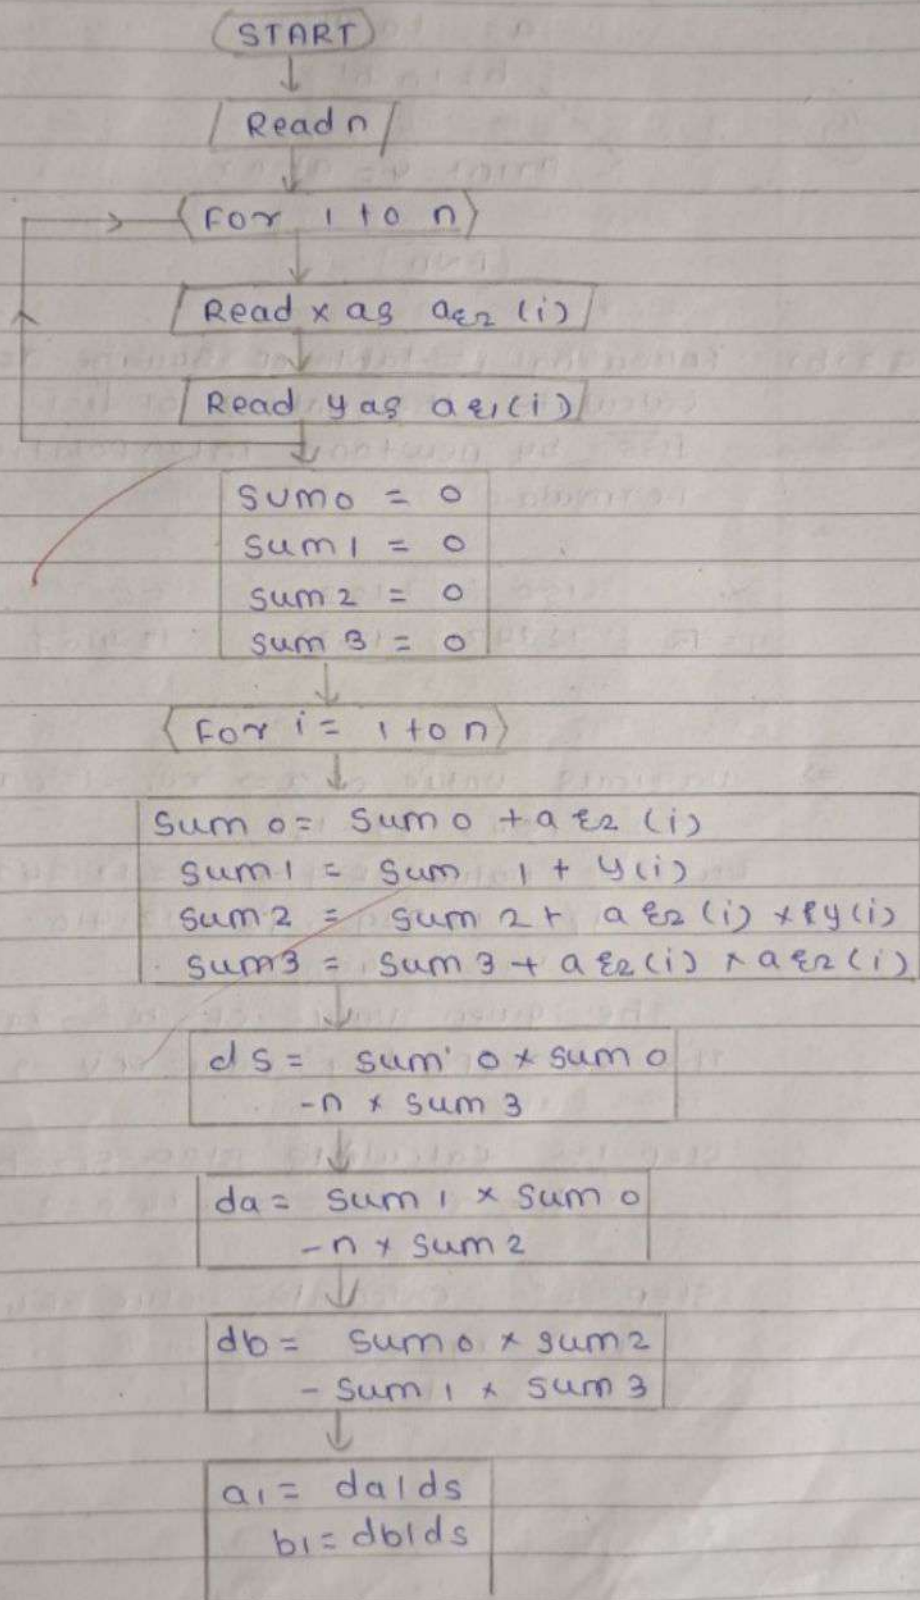 START
Read n
For 1 to n
Read x as aξ2 (i)
Read y as aξ1(i)
sum0 = 0
sum1 = 0
sum2 = 0
sum3 = 0
For i = 1 to n
sum0 = sum0 + aξ2 (i)
sum1 = sum 1 + y(i)
sum2 = sum 2+ aξ2 (i) × y(i)
sum3 = sum 3 + aξ2(i) × aξ2(i)
ds = sum 0 × sum 0
-n × sum 3
da = sum 1 × sum 0
-n × sum2
db = sum 0 × sum2
- sum 1 × sum 3
a1 = da/ds
b1 = db/ds